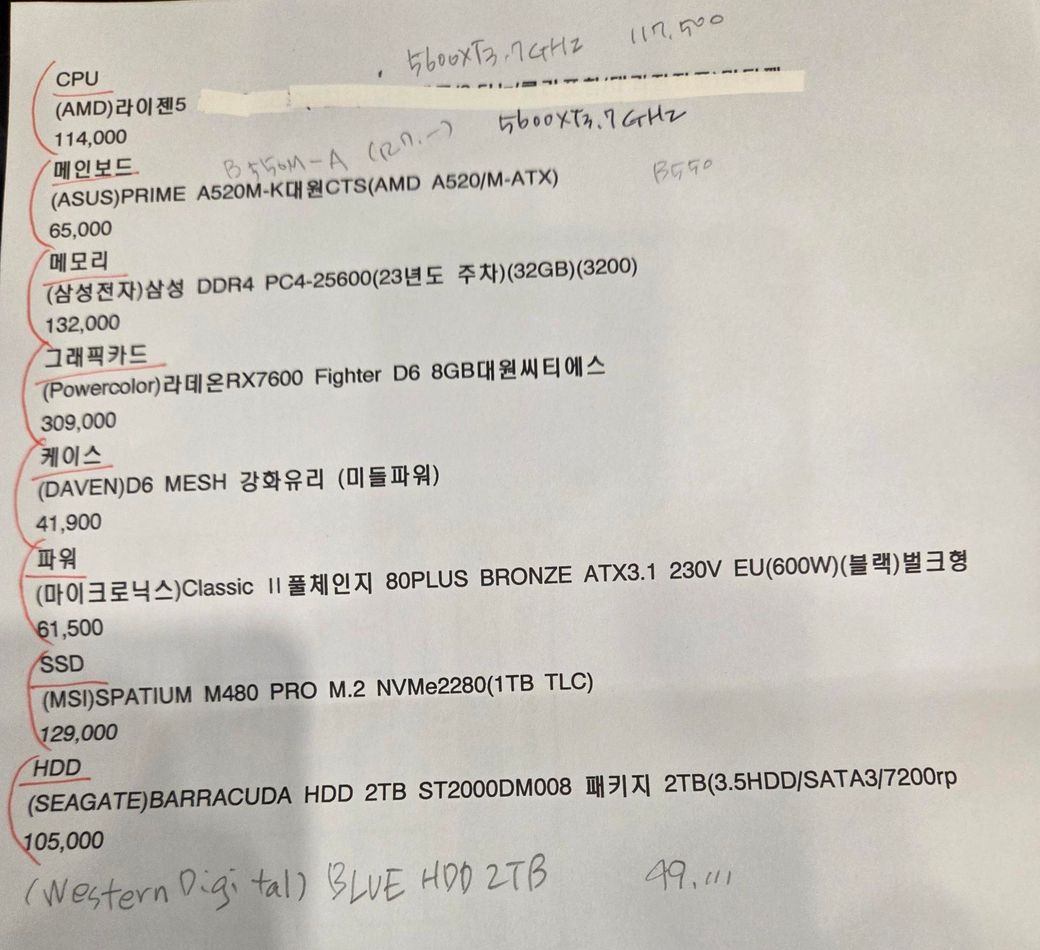 5600XT3.7GHz 117,500
CPU
(AMD)라이젠5
5600XT3.7GHz
114,000
메인보드
B550M-A
B550
(ASUS)PRIME A520M-K대원CTS(AMD A520/M-ATX)
65,000
메모리
(삼성전자)삼성 DDR4 PC4-25600(23년도 주차)(32GB)(3200)
132,000
그래픽카드
(Powercolor)라데온RX7600 Fighter D6 8GB대원씨티에스
309,000
케이스
(DAVEN)D6 MESH 강화유리 (미들파워)
41,900
파워
(마이크로닉스)Classic II풀체인지 80PLUS BRONZE ATX3.1 230V EU(600W)(블랙)벌크형
61,500
SSD
(MSI)SPATIUM M480 PRO M.2 NVMe2280(1TB TLC)
129,000
HDD
(SEAGATE)BARRACUDA HDD 2TB ST2000DM008 패키지 2TB(3.5HDD/SATA3/7200rp
105,000
(Western Digital) BLUE HDD 2TB